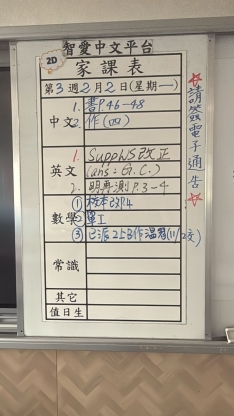 智愛中文平台
2D
家課表
第3週2月2日(星期一)
中文
1. 書P.46-48
2. 作(四)
英文
1. Supp WS改正
(ans: G.C.)
2. 明再測P.3-4
數學
① 校本改P.4
② 單工
③ 已派2上B作溫習(11/2交)
常識
其它
值日生
☆請簽電子通告☆